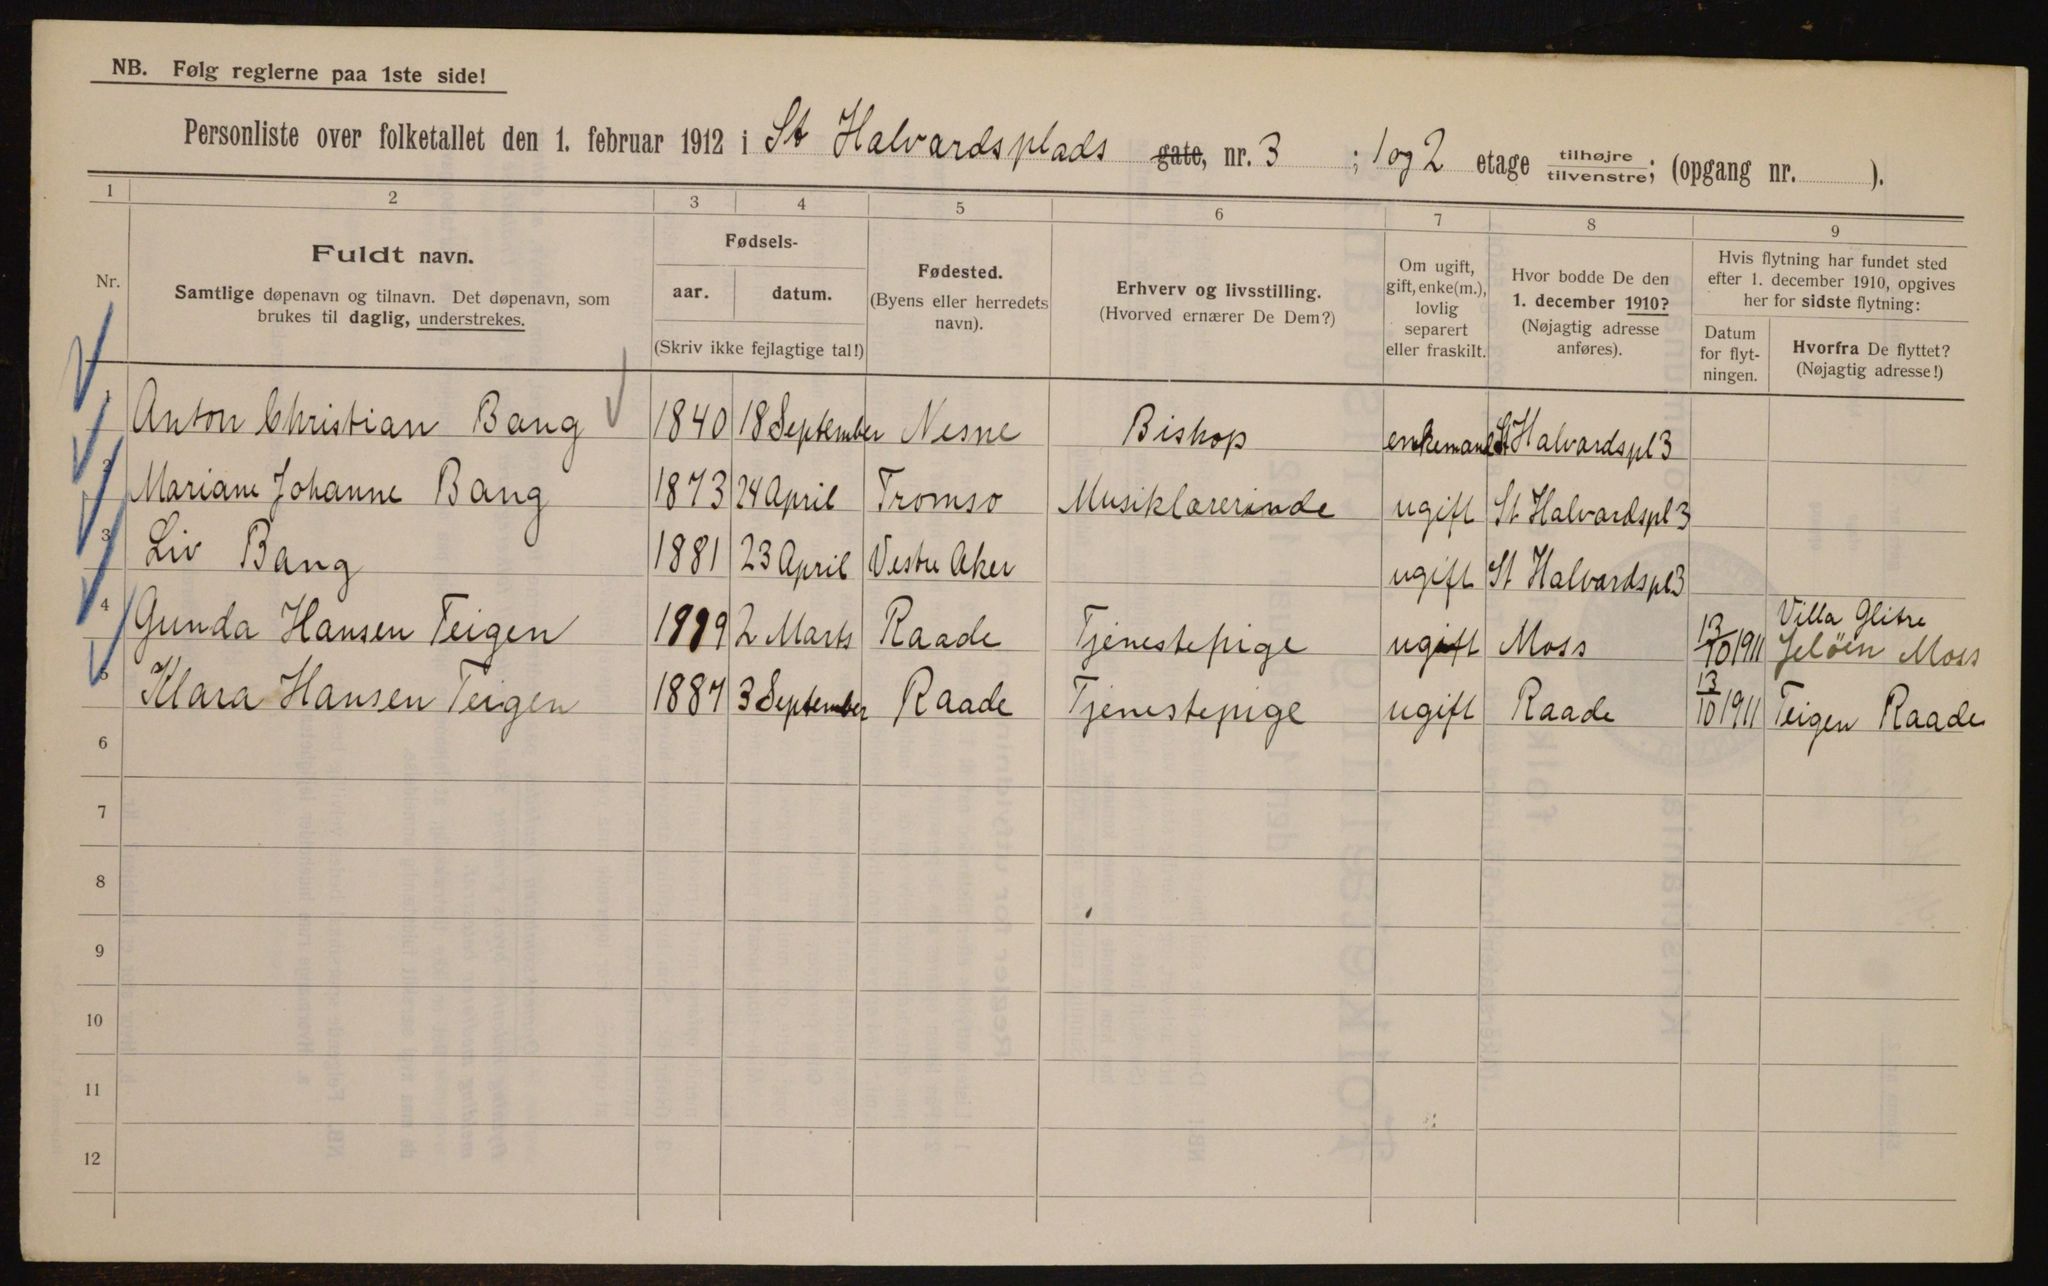 NB. Følg reglerne paa 1ste side!
Personliste over folketallet den 1. februar 1912 i St Halvardsplads gate, nr. 3 ; 1 og 2 etage tilhøjre tilvenstre; (opgang nr. ).
1 2 3 4 5 6 7 8 9
Nr.
Fuldt navn.
Samtlige døpenavn og tilnavn. Det døpenavn, som
brukes til daglig, understrekes.
Fødsels-
aar. datum.
(Skriv ikke fejlagtige tal!)
Fødested.
(Byens eller herredets
navn).
Erhverv og livsstilling.
(Hvorved ernærer De Dem?)
Om ugift,
gift, enke(m.),
lovlig
separert
eller fraskilt.
Hvor bodde De den
1. december 1910?
(Nøjagtig adresse
anføres).
Hvis flytning har fundet sted
efter 1. december 1910, opgives
her for sidste flytning:
Datum
for flyt-
ningen.
Hvorfra De flyttet?
(Nøjagtig adresse!)
1 Anton Christian Bang 1840 18 September Nesne Bishop enkemand St Halvardspl 3
2 Mariane Johanne Bang 1873 24 April Tromso Musiklærerinde ugift St Halvardspl 3
3 Liv Bang 1881 23 April Vestre Aker ugift St Halvardspl 3
4 Gunda Hansen Teigen 2 Marts Raade Tjenestepige ugift Moss 13/10 1911 Villa Glitre
Jeløen Moss
5 Klara Hansen Teigen 1887 3 September Raade Tjenestepige ugift Raade 13/10 1911 Teigen Raade
6
7
8
9
10
11
12